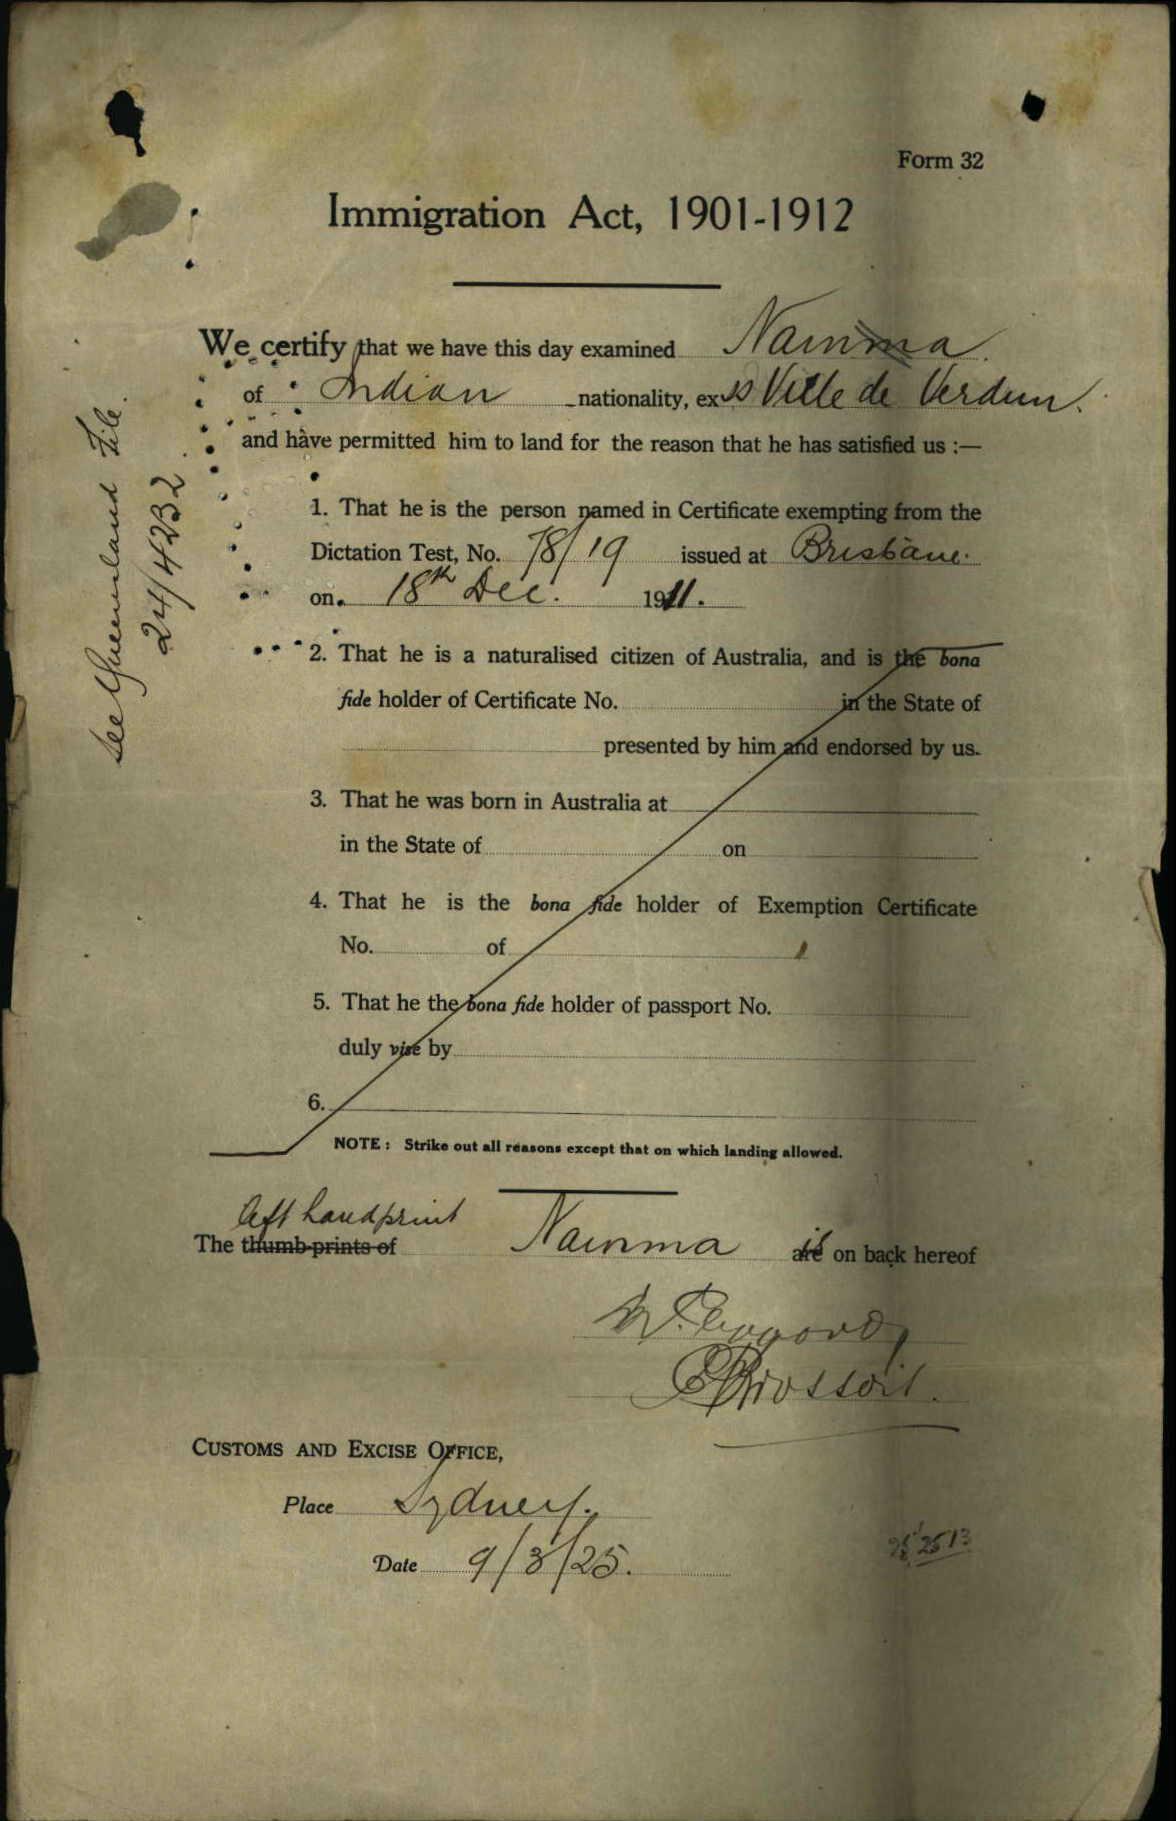 Form 32
Immigration Act, 1901-1912
We certify that we have this day examined Namma
of Indian nationality, ex ss Ville de Verdun.
and have permitted him to land for the reason that he has satisfied us :—
1. That he is the person named in Certificate exempting from the
Dictation Test, No. 78/19 issued at Brisbane.
on 18th Dec. 1911.
2. That he is a naturalised citizen of Australia, and is the bona
fide holder of Certificate No. in the State of
presented by him and endorsed by us.
3. That he was born in Australia at
in the State of on
4. That he is the bona fide holder of Exemption Certificate
No. of
5. That he the bona fide holder of passport No.
duly visé by
6.
NOTE : Strike out all reasons except that on which landing allowed.
left handprint
The thumb-prints of Namma are is on back hereof
CUSTOMS AND EXCISE OFFICE,
Place Sydney.
Date 9/3/25.
See Queensland File.
24/4232